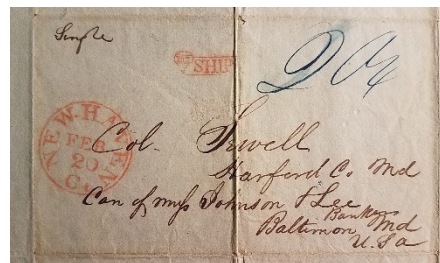 Single
SHIP
NEW-HAVEN Ct.
FEB
20
Col. Sewell
Harford Co Md
Care of mess Johnson & Lee
Bankers
Baltimore Md
U.S.a